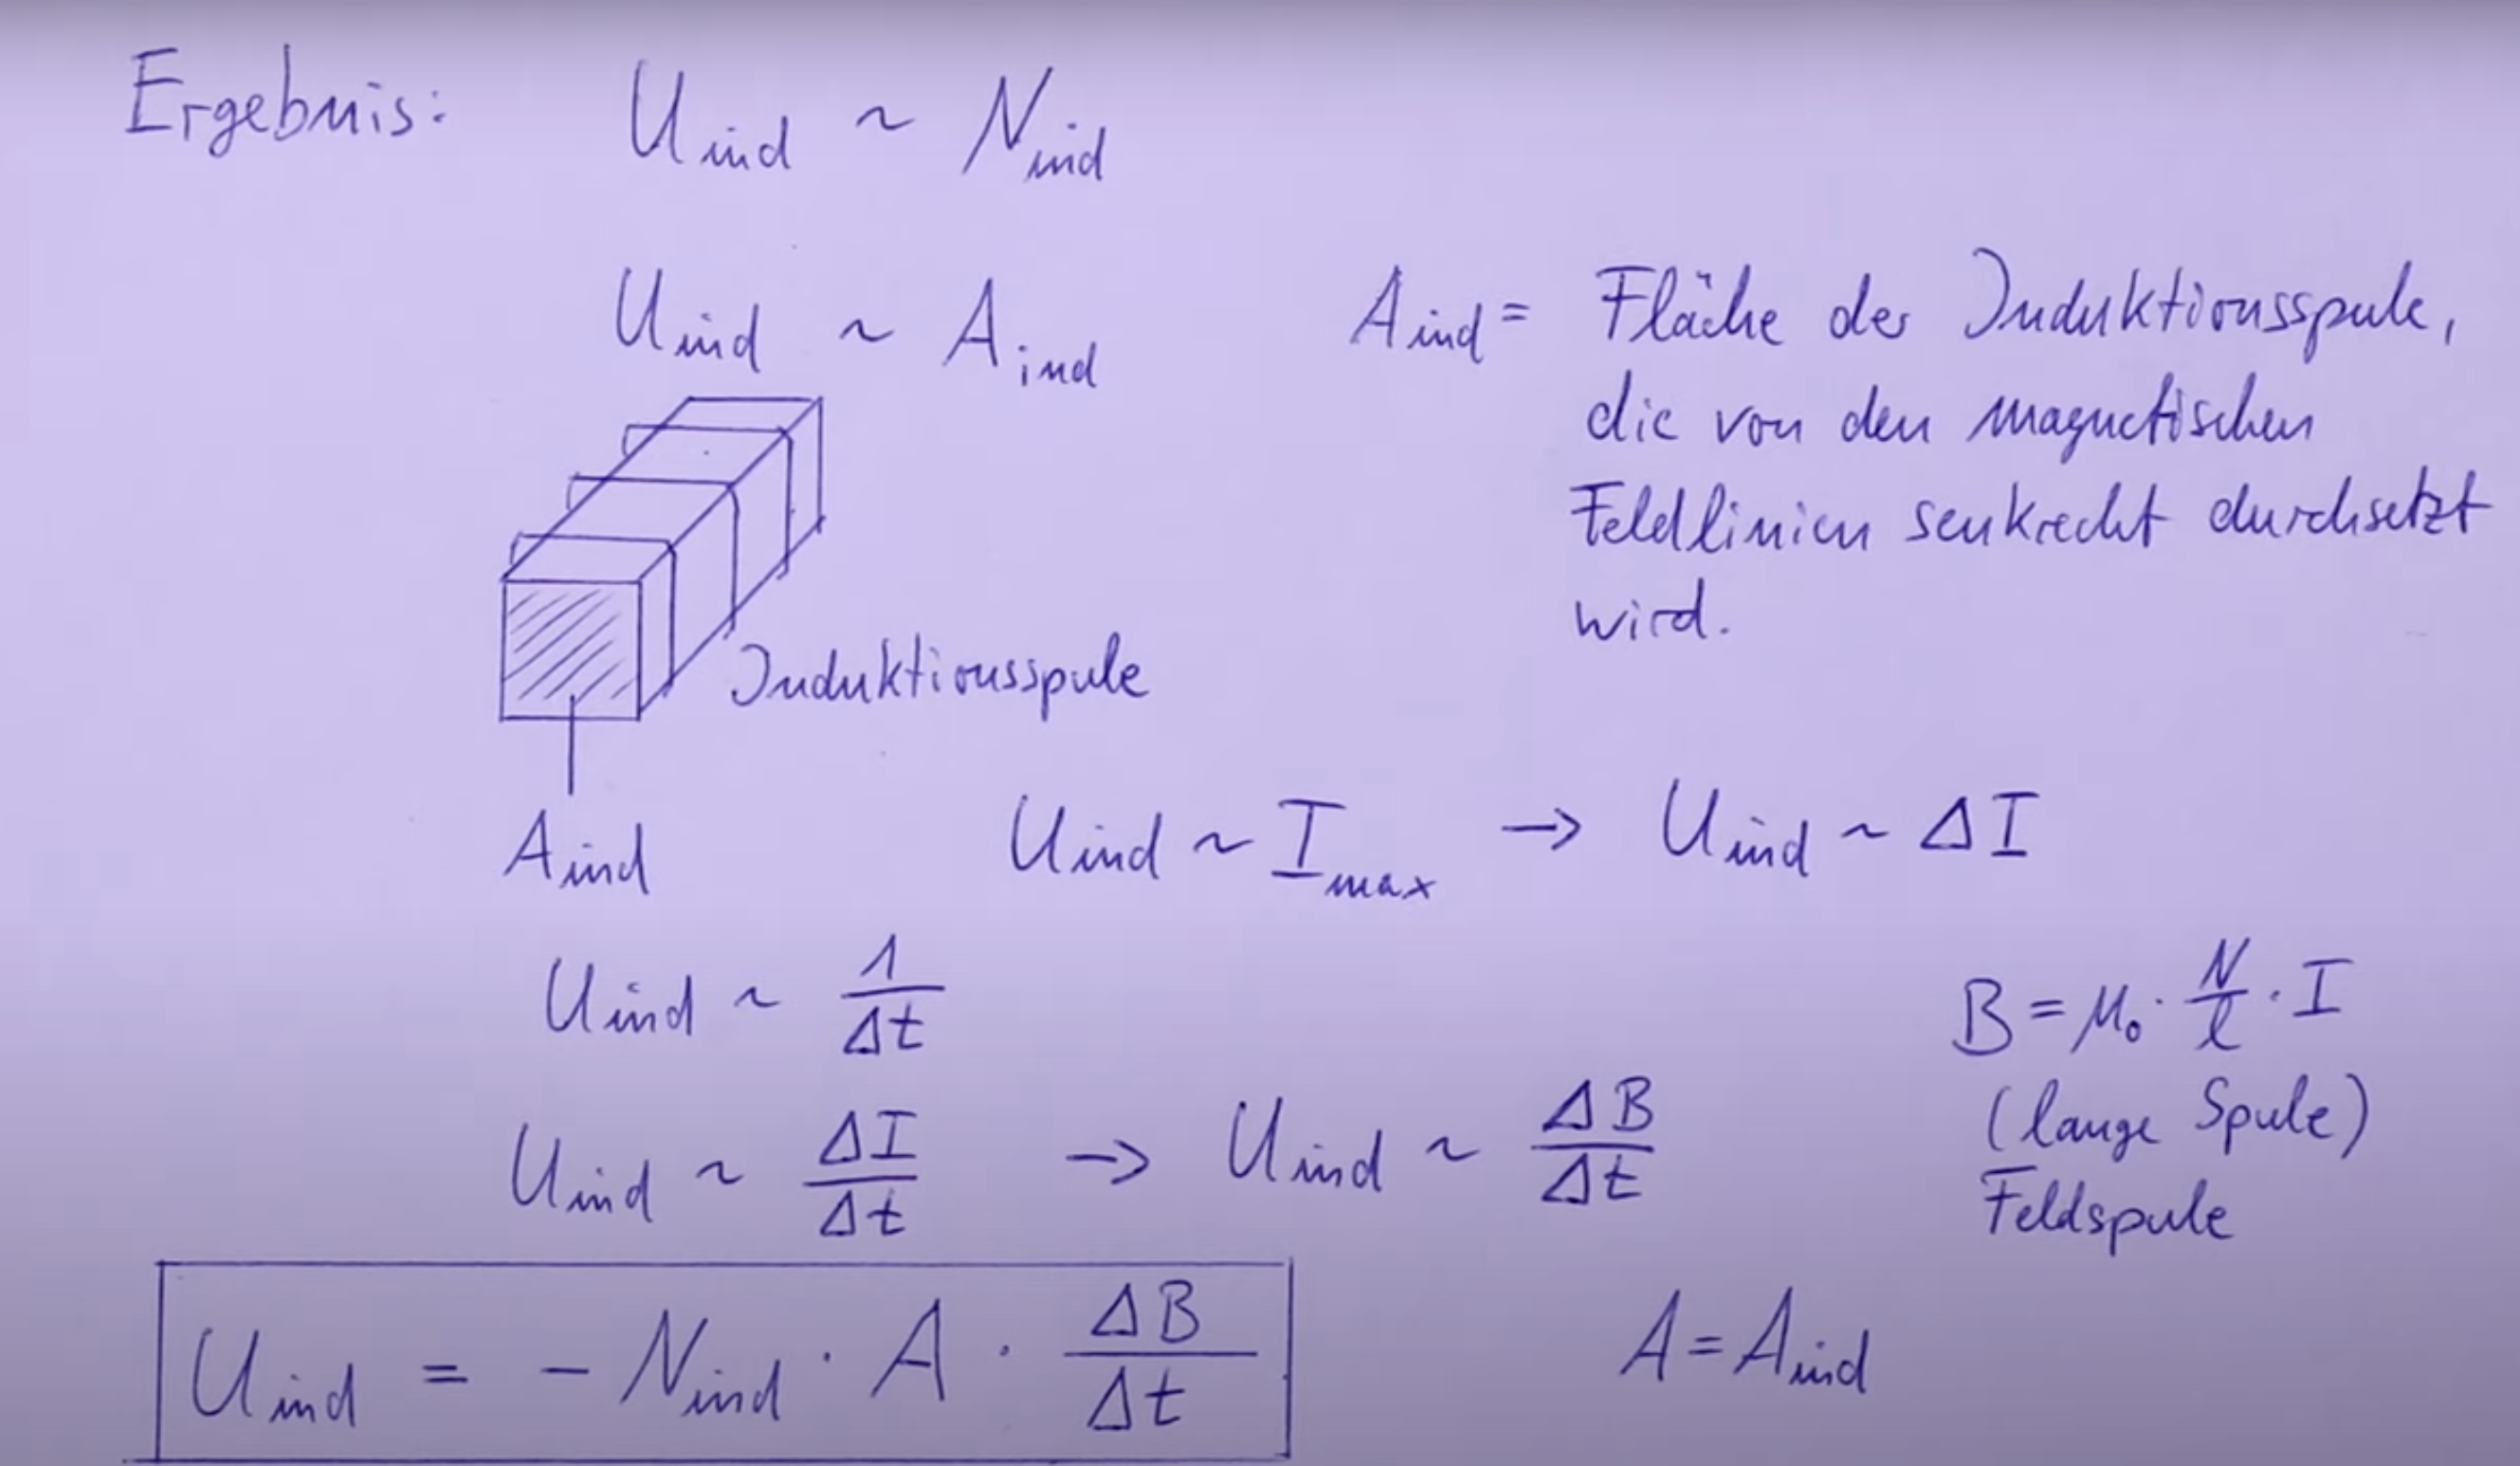 Ergebnis: U_ind ~ N_ind
U_ind ~ A_ind
A_ind = Fläche der Induktionsspule,
die von den magnetischen
Feldlinien senkrecht durchsetzt
wird.
Induktionsspule
A_ind
U_ind ~ I_max → U_ind ~ ΔI
U_ind ~ 1/Δt
B = μ₀ · N/l · I
(lange Spule)
Feldspule
U_ind ~ ΔI/Δt → U_ind ~ ΔB/Δt
U_ind = - N_ind · A · ΔB/Δt
A = A_ind